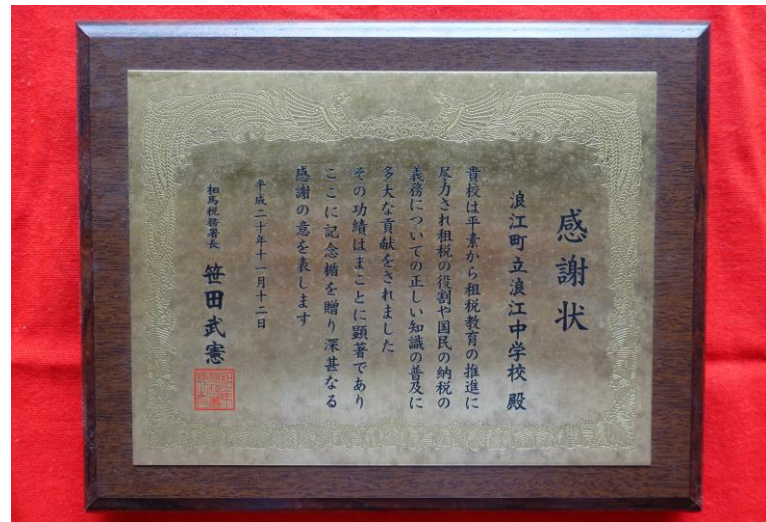 感謝状
浪江町立浪江中学校 殿
貴校は平素から租税教育の推進に
尽力され租税の役割や国民の納税の
義務についての正しい知識の普及に
多大な貢献をされました
その功績はまことに顕著であり
ここに記念楯を贈り深甚なる
感謝の意を表します
平成二十年十一月十二日
相馬税務署長 笹田武憲